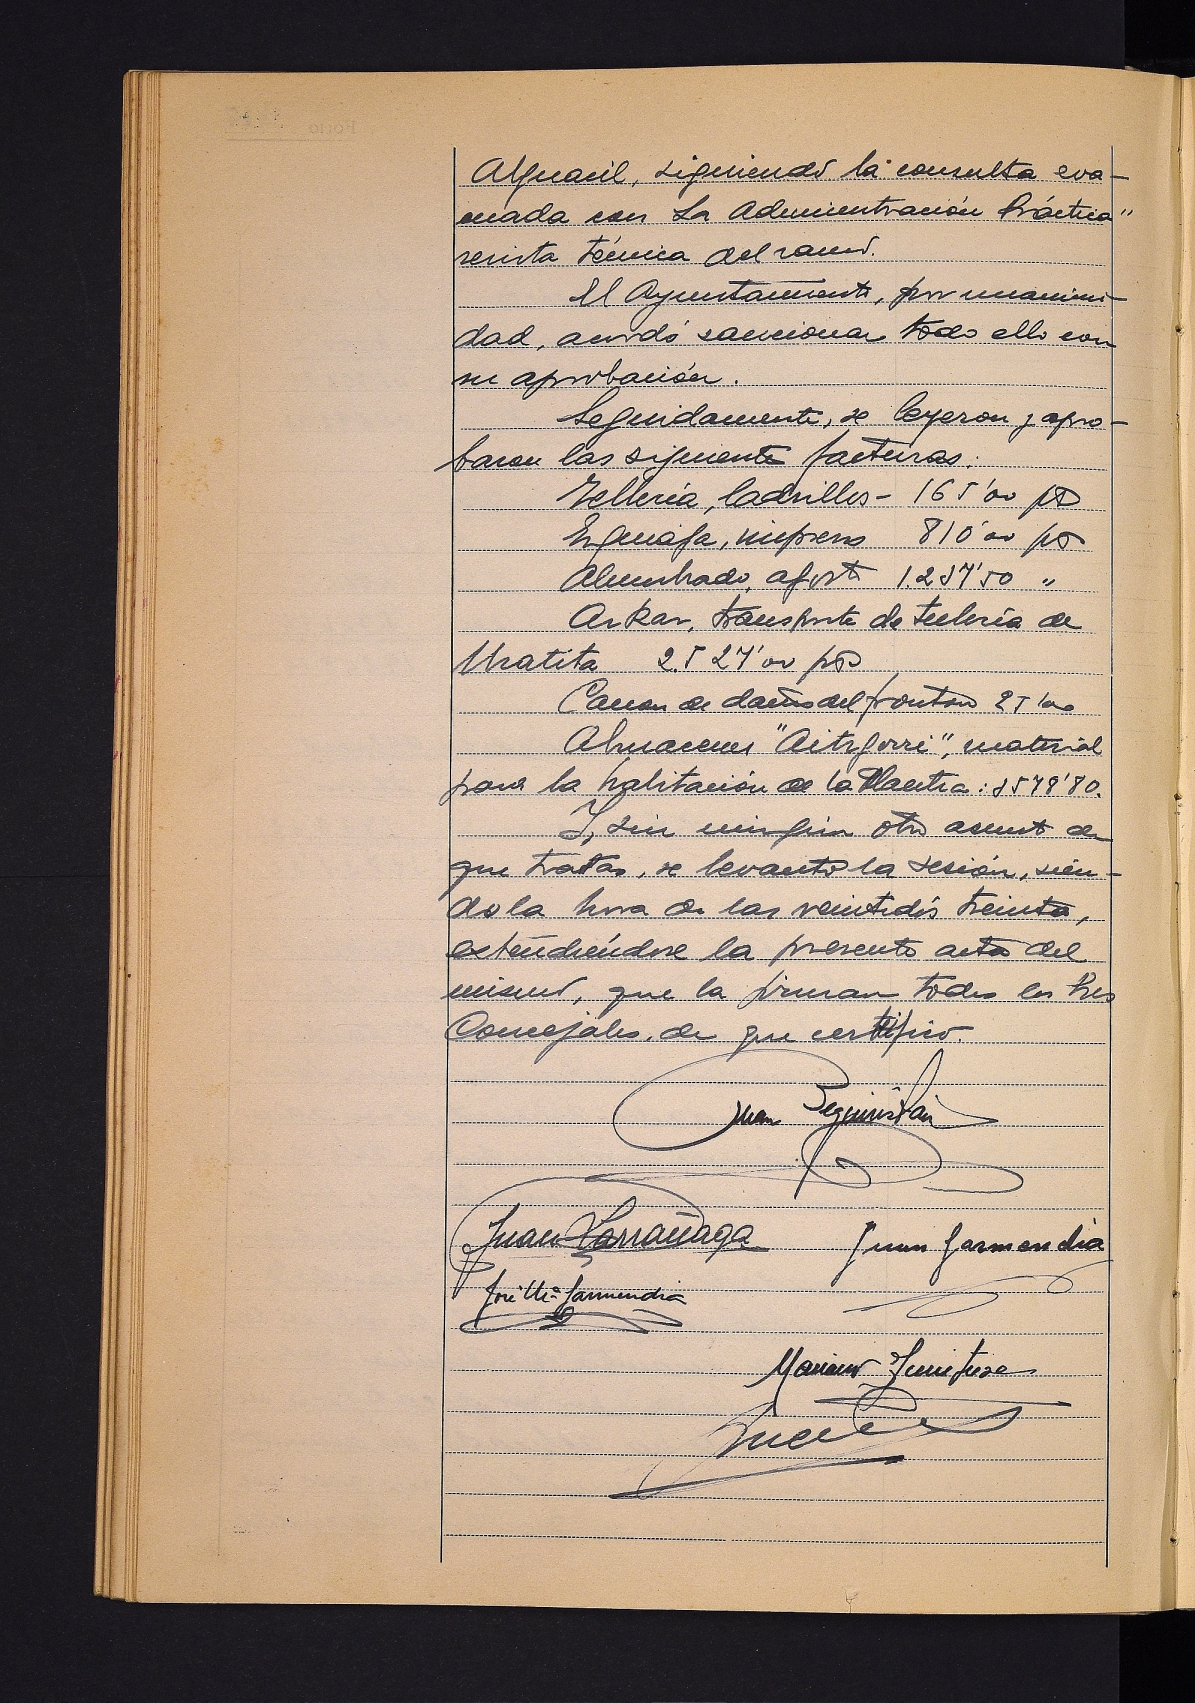 Alguacil, siguiendo la consulta eva-
cuada con La Administración Práctica"
revista técnica del ramo.
El Ayuntamiento, por unanimi-
dad, acordó sancionar todo ello con
su aprobación.
Seguidamente, se leyeron y apro-
baron las siguiente facturas:
Tellería, ladrillos - 165'00 pts
Eguía, impresos 810'00 pts
Alumbrado, agosto 1.237'50 "
Arkar, transporte de tubería de
Uratita 2.527'00 pts
Canon de daños del frontón 25'00
Almacenes "Aitzgorri", material
para la habitación de la Maestra: 3578'80.
Y, sin ningún otro asunto de
que tratar, se levantó la sesión, sien-
do la hora de las veintidós treinta,
extendiéndose la presente acta del
mismo, que la firman todos los Sres
Concejales, de que certifico.
Juan Beguiristain
Juan Larrañaga Juan Garmendia
José Mª Garmendia
Mariano